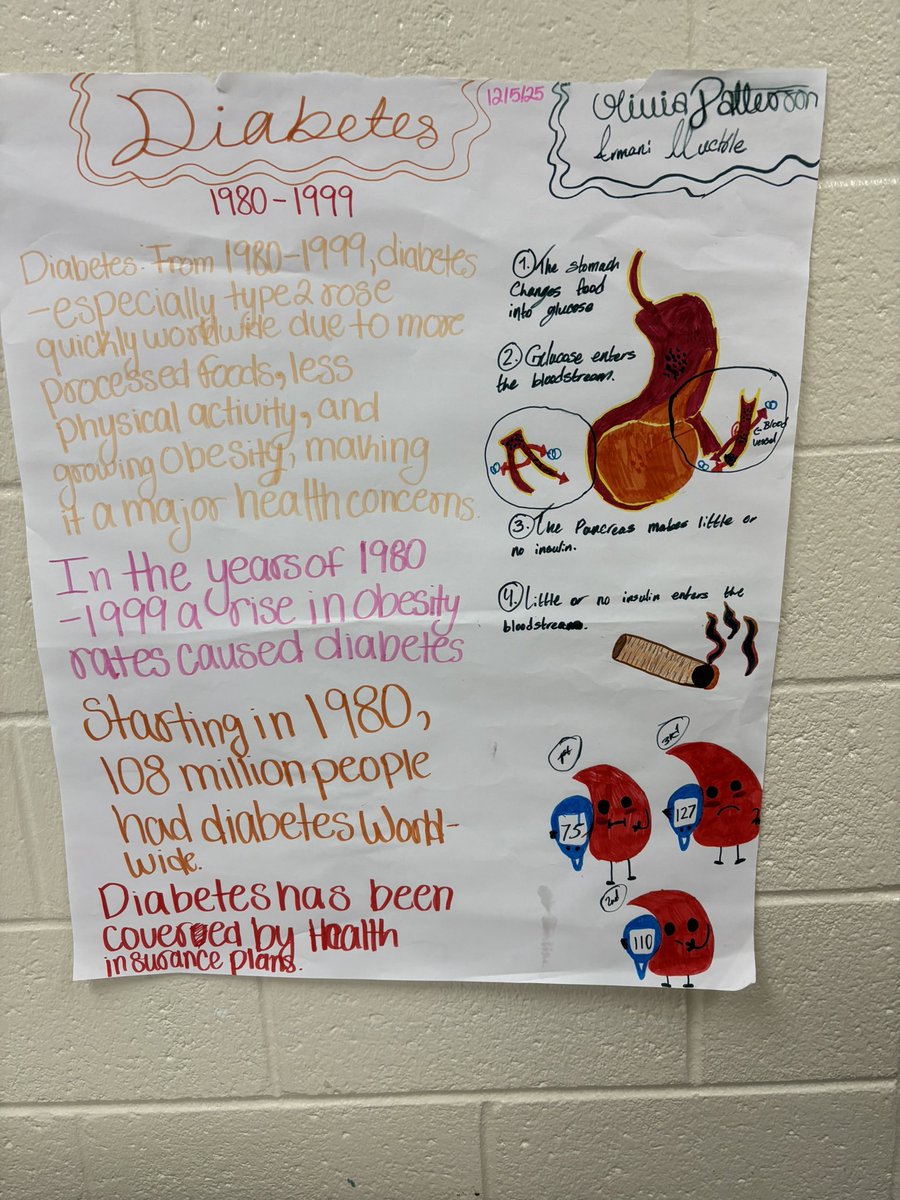 Diabetes
1980-1999
12/5/25
Olivia Patterson
Armani
Diabetes: From 1980-1999, diabetes
-especially type 2 rose
quickly worldwide due to more
processed foods, less
physical activity, and
growing obesity, making
it a major health concerns.
In the years of 1980
-1999 a rise in obesity
rates caused diabetes
Starting in 1980,
108 million people
had diabetes World-
wide.
Diabetes has been
covered by Health
insurance plans.
1. The stomach
Changes food
into glucose
2. Glucose enters
the bloodstream.
Blood
vessel
3. The Pancreas makes little or
no insulin.
4. Little or no insulin enters the
bloodstream.
1st
75
3rd
127
2nd
110